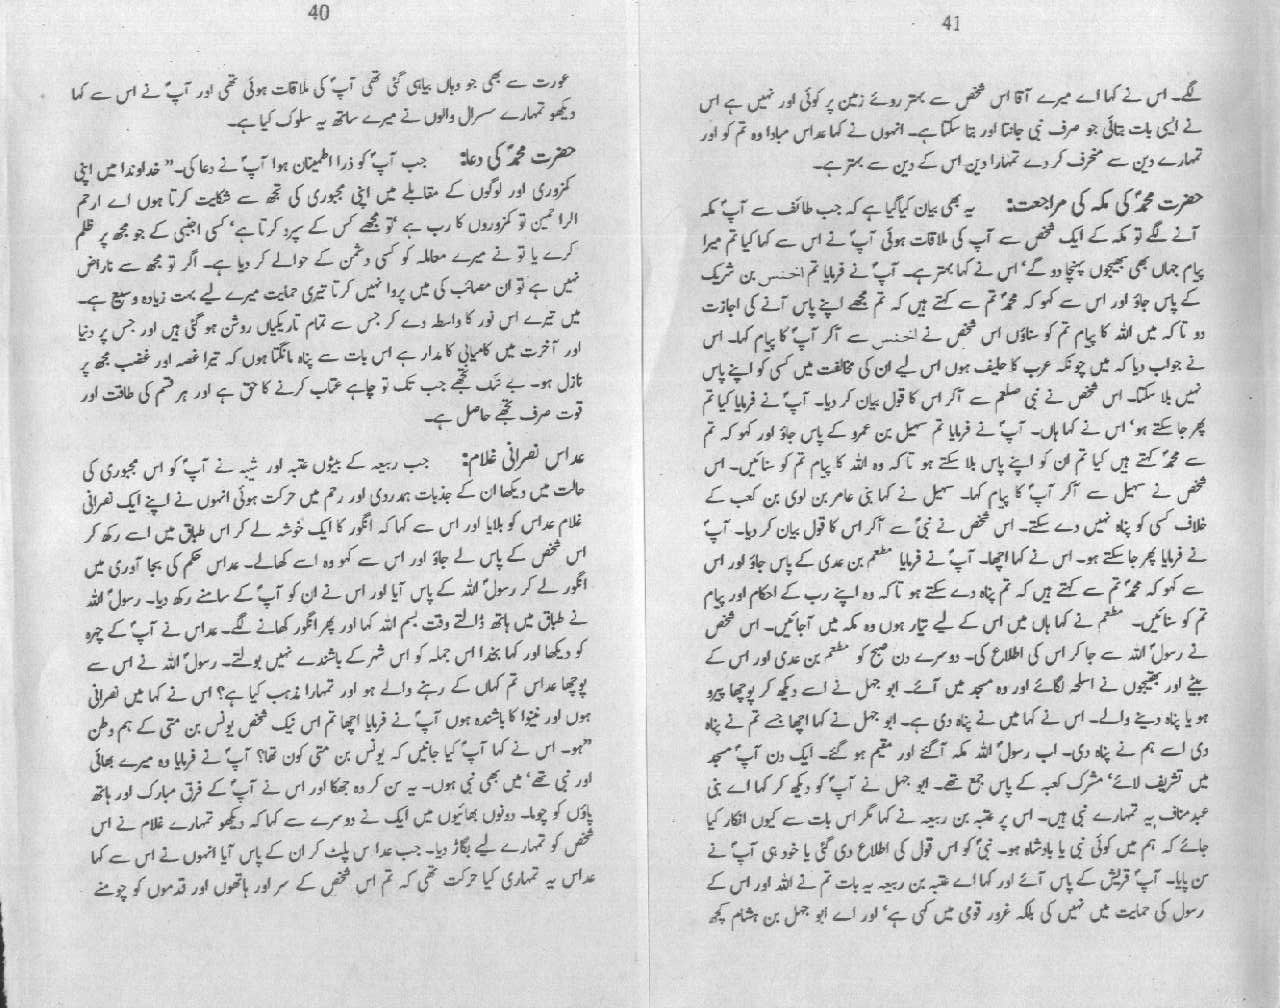 40
عورت سے بھی جو وہاں بیاہی گئی تھی آپؐ کی ملاقات ہوئی تھی اور آپؐ نے اس سے کہا
دیکھو تمہارے سسرال والوں نے میرے ساتھ یہ سلوک کیا ہے۔
حضرت محمدؐ کی دعا: جب آپؐ کو ذرا اطمینان ہوا آپؐ نے دعا کی۔ ”خداوندا میں اپنی
کمزوری اور لوگوں کے مقابلے میں اپنی مجبوری کی تجھ سے شکایت کرتا ہوں اے ارحم
الراحمین تو کمزوروں کا رب ہے ‘تو مجھے کس کے سپرد کرتا ہے‘ کسی اجنبی کے جو مجھ پر ظلم
کرے یا تو نے میرے معاملہ کو کسی دشمن کے حوالے کر دیا ہے۔ اگر تو مجھ سے ناراض
نہیں ہے تو ان مصائب کی میں پروا نہیں کرتا تیری حمایت میرے لیے بہت زیادہ وسیع ہے۔
میں تیرے اس نور کا واسطہ دے کر جس سے تمام تاریکیاں روشن ہو گئی ہیں اور جس پر دنیا
اور آخرت میں کامیابی کا مدار ہے اس بات سے پناہ مانگتا ہوں کہ تیرا غصہ اور غضب مجھ پر
نازل ہو۔ بے شک تجھے جب تک تو چاہے عتاب کرنے کا حق ہے اور ہر قسم کی طاقت اور
قوت صرف تجھے حاصل ہے۔
عداس نصرانی غلام: جب ربیعہ کے بیٹوں عتبہ اور شیبہ نے آپؐ کو اس مجبوری کی
حالت میں دیکھا ان کے جذبات ہمدردی اور رحم میں حرکت ہوئی انہوں نے اپنے ایک نصرانی
غلام عداس کو بلایا اور اس سے کہا کہ انگور کا ایک خوشہ لے کر اس طباق میں اسے رکھ کر
اس شخص کے پاس لے جاؤ اور اس سے کہو وہ اسے کھالے۔ عداس حکم کی بجا آوری میں
انگور لے کر رسولؐ اللہ کے پاس آیا اور اس نے ان کو آپؐ کے سامنے رکھ دیا۔ رسولؐ اللہ
نے طباق میں ہاتھ ڈالتے وقت بسم اللہ کہا اور پھر انگور کھانے لگے۔ عداس نے آپؐ کے چہرہ
کو دیکھا اور کہا بخدا اس جملہ کو اس شہر کے باشندے نہیں بولتے۔ رسولؐ اللہ نے اس سے
پوچھا عداس تم کہاں کے رہنے والے ہو اور تمہارا مذہب کیا ہے؟ اس نے کہا میں نصرانی
ہوں اور نینوا کا باشندہ ہوں آپؐ نے فرمایا اچھا تم اس نیک شخص یونس بن متی کے ہم وطن
”ہو۔ اس نے کہا آپؐ کیا جانیں کہ یونس بن متی کون تھا؟ آپؐ نے فرمایا وہ میرے بھائی
اور نبی تھے‘ میں بھی نبی ہوں۔ یہ سن کر وہ جھکا اور اس نے آپؐ کے فرق مبارک اور ہاتھ
پاؤں کو چوما۔ دونوں بھائیوں میں ایک نے دوسرے سے کہا کہ دیکھو تمہارے غلام نے اس
شخص کو تمہارے لیے بگاڑ دیا۔ جب عداس پلٹ کر ان کے پاس آیا انہوں نے اس سے کہا
عداس یہ تمہاری کیا حرکت تھی کہ تم اس شخص کے سر اور ہاتھوں اور قدموں کو چومنے
41
لگے۔ اس نے کہا اے میرے آقا اس شخص سے بہتر روئے زمین پر کوئی اور نہیں ہے اس
نے ایسی بات بتائی جو صرف نبی جانتا اور بتا سکتا ہے۔ انہوں نے کہا عداس مبادا وہ تم کو اور
تمہارے دین سے منحرف کر دے تمہارا دین اس کے دین سے بہتر ہے۔
حضرت محمدؐ کی مکہ کی مراجعت: یہ بھی بیان کیا گیا ہے کہ جب طائف سے آپؐ مکہ
آنے لگے تو مکہ کے ایک شخص سے آپ کی ملاقات ہوئی آپؐ نے اس سے کہا کیا تم میرا
پیام جہاں بھی بھیجوں پہنچا دو گے‘ اس نے کہا بہتر ہے۔ آپؐ نے فرمایا تم اخنس بن شریک
کے پاس جاؤ اور اس سے کہو کہ محمدؐ تم سے کہتے ہیں کہ تم مجھے اپنے پاس آنے کی اجازت
دو تاکہ میں اللہ کا پیام تم کو سناؤں اس شخص نے اخنس سے آکر آپؐ کا پیام کہا۔ اس
نے جواب دیا کہ میں چونکہ عرب کا حلیف ہوں اس لیے ان کی مخالفت میں کسی کو اپنے پاس
نہیں بلا سکتا۔ اس شخص نے نبی صلعم سے آکر اس کا قول بیان کر دیا۔ آپؐ نے فرمایا کیا تم
پھر جا سکتے ہو‘ اس نے کہا ہاں۔ آپؐ نے فرمایا تم سہیل بن عمرو کے پاس جاؤ اور کہو کہ تم
سے محمدؐ کہتے ہیں کیا تم ان کو اپنے پاس بلا سکتے ہو تاکہ وہ اللہ کا پیام تم کو سنائیں۔ اس
شخص نے سہیل سے آکر آپؐ کا پیام کہا۔ سہیل نے کہا بنی عامر بن لوی بن کعب کے
خلاف کسی کو پناہ نہیں دے سکتے۔ اس شخص نے نبیؐ سے آکر اس کا قول بیان کر دیا۔ آپؐ
نے فرمایا پھر جا سکتے ہو۔ اس نے کہا اچھا۔ آپؐ نے فرمایا مطعم بن عدی کے پاس جاؤ اور اس
سے کہو کہ محمدؐ تم سے کہتے ہیں کہ تم پناہ دے سکتے ہو تاکہ وہ اپنے رب کے احکام اور پیام
تم کو سنائیں۔ مطعم نے کہا ہاں میں اس کے لیے تیار ہوں وہ مکہ میں آجائیں۔ اس شخص
نے رسولؐ اللہ سے جا کر اس کی اطلاع کی۔ دوسرے دن صبح کو مطعم بن عدی اور اس کے
بیٹے اور بھتیجوں نے اسلحہ لگائے اور وہ مسجد میں آئے۔ ابو جہل نے اسے دیکھ کر پوچھا پیرو
ہو یا پناہ دینے والے۔ اس نے کہا میں نے پناہ دی ہے۔ ابو جہل نے کہا اچھا جسے تم نے پناہ
دی اسے ہم نے پناہ دی۔ اب رسولؐ اللہ مکہ آگئے اور مقیم ہو گئے۔ ایک دن آپؐ مسجد
میں تشریف لائے‘ مشرک کعبہ کے پاس جمع تھے۔ ابو جہل نے آپؐ کو دیکھ کر کہا اے بنی
عبدمناف یہ تمہارے نبی ہیں۔ اس پر عتبہ بن ربیعہ نے کہا مگر اس بات سے کیوں انکار کیا
جائے کہ ہم میں کوئی نبی یا بادشاہ ہو۔ نبیؐ کو اس قول کی اطلاع دی گئی یا خود ہی آپؐ نے
سن پایا۔ آپؐ قریش کے پاس آئے اور کہا اے عتبہ بن ربیعہ یہ بات تم نے اللہ اور اس کے
رسول کی حمایت میں نہیں کی بلکہ غرور قومی میں کہی ہے‘ اور اے ابو جہل بن ہشام کچھ